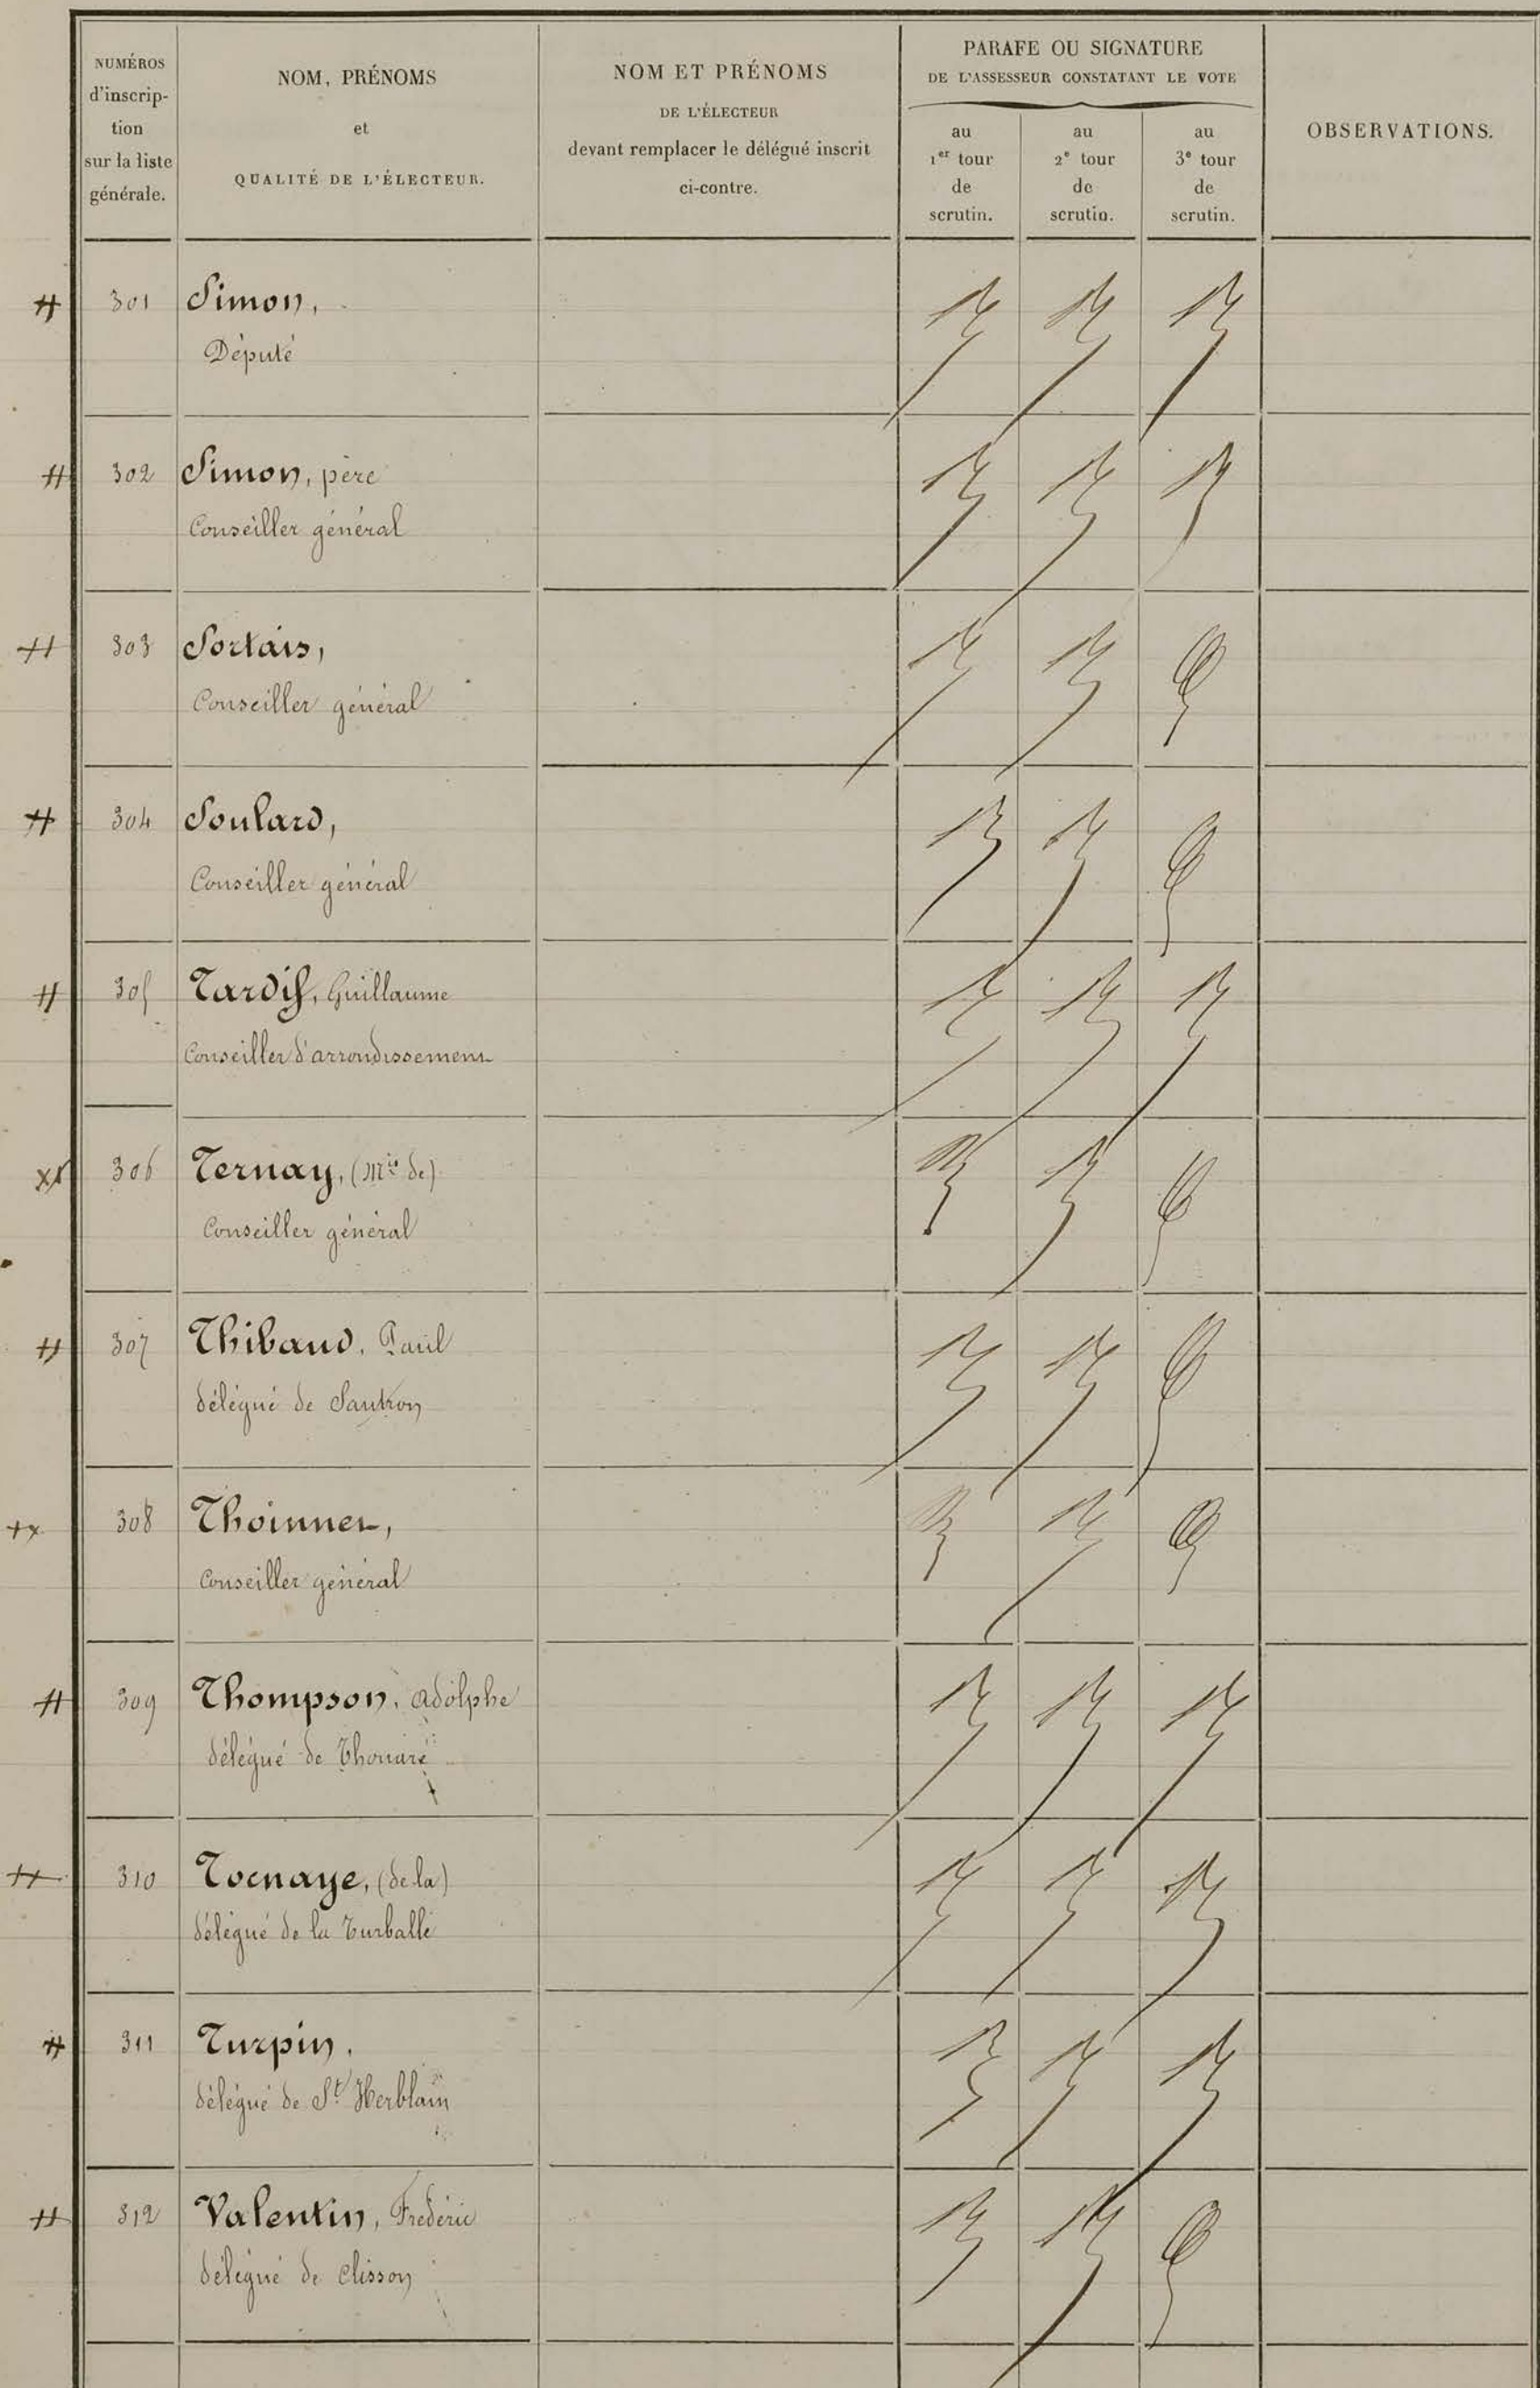 NUMÉROS
d'inscrip-
tion
sur la liste
générale.
NOM, PRÉNOMS
et
QUALITÉ DE L'ÉLECTEUR.
NOM ET PRÉNOMS
DE L'ÉLECTEUR
devant remplacer le délégué inscrit
ci-contre.
PARAFE OU SIGNATURE
DE L'ASSESSEUR CONSTATANT LE VOTE
au
1er tour
de
scrutin.
au
2e tour
de
scrutin.
au
3e tour
de
scrutin.
OBSERVATIONS.
301 Simon,
Député
302 Simon, père
Conseiller général
303 Sortais,
Conseiller général
304 Soulard,
Conseiller général
305 Tardif, Guillaume
Conseiller d'arrondissement
306 Ternay, (Mis de)
Conseiller général
307 Thibaud, Paul
délégué de Sautron
308 Thoinnet,
Conseiller général
309 Thompson, Adolphe
délégué de Thouaré
310 Tocnaye, (de la)
délégué de la Turballe
311 Turpin,
délégué de St Herblain
312 Valentin, Frédéric
délégué de Clisson